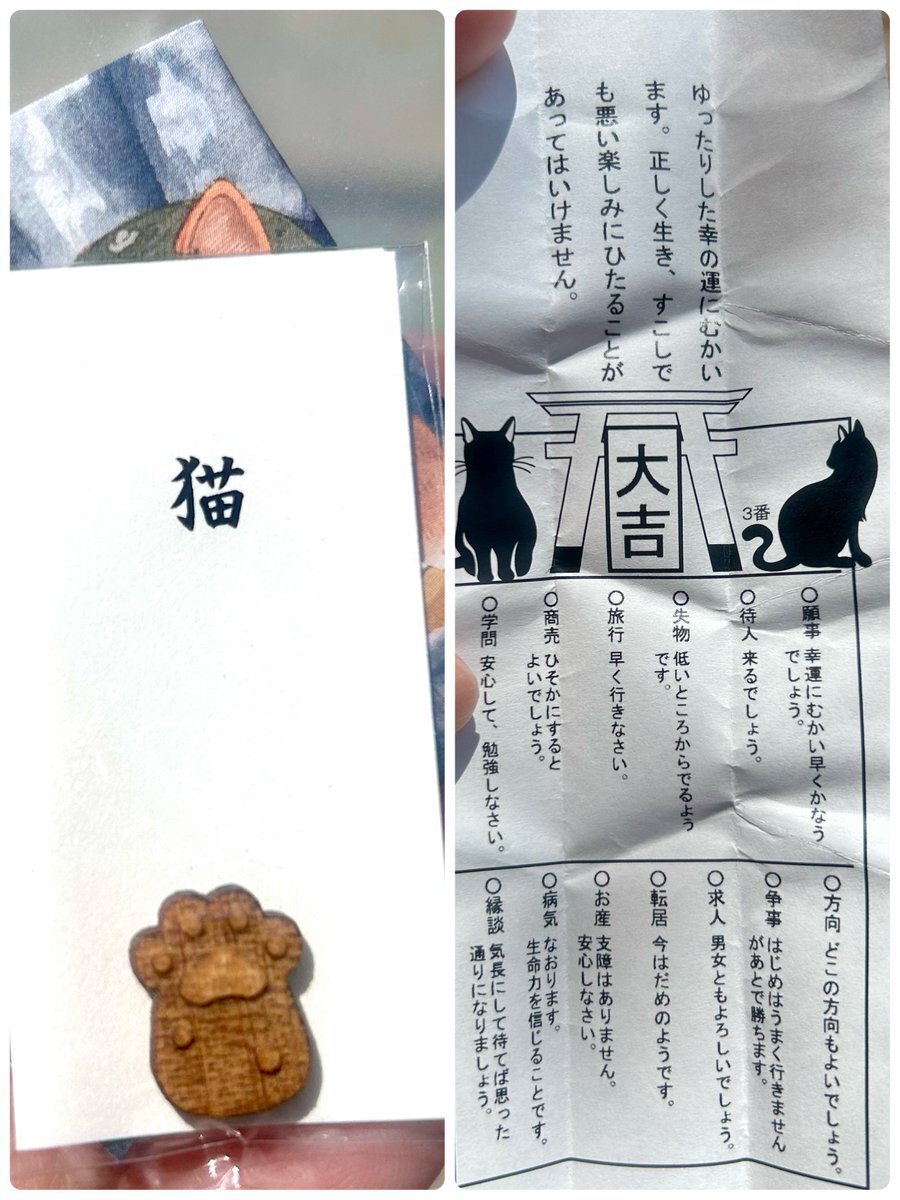 猫
ゆったりした幸の運にむかい
ます。正しく生き、すこしで
も悪い楽しみにひたることが
あってはいけません。
大吉
3番
○願事 幸運にむかい早くかなう
でしょう。
○待人 来るでしょう。
○失物 低いところからでるよう
です。
○旅行 早く行きなさい。
○商売 ひそかにすると
よいでしょう。
○学問 安心して、勉強しなさい。
○方向 どこの方向もよいでしょう。
○争事 はじめはうまく行きません
があとで勝ちます。
○求人 男女ともよろしいでしょう。
○転居 今はだめのようです。
○お産 支障はありません。
安心しなさい。
○病気 なおります。
生命力を信じることです。
○縁談 気長にして待てば思った
通りになりましょう。